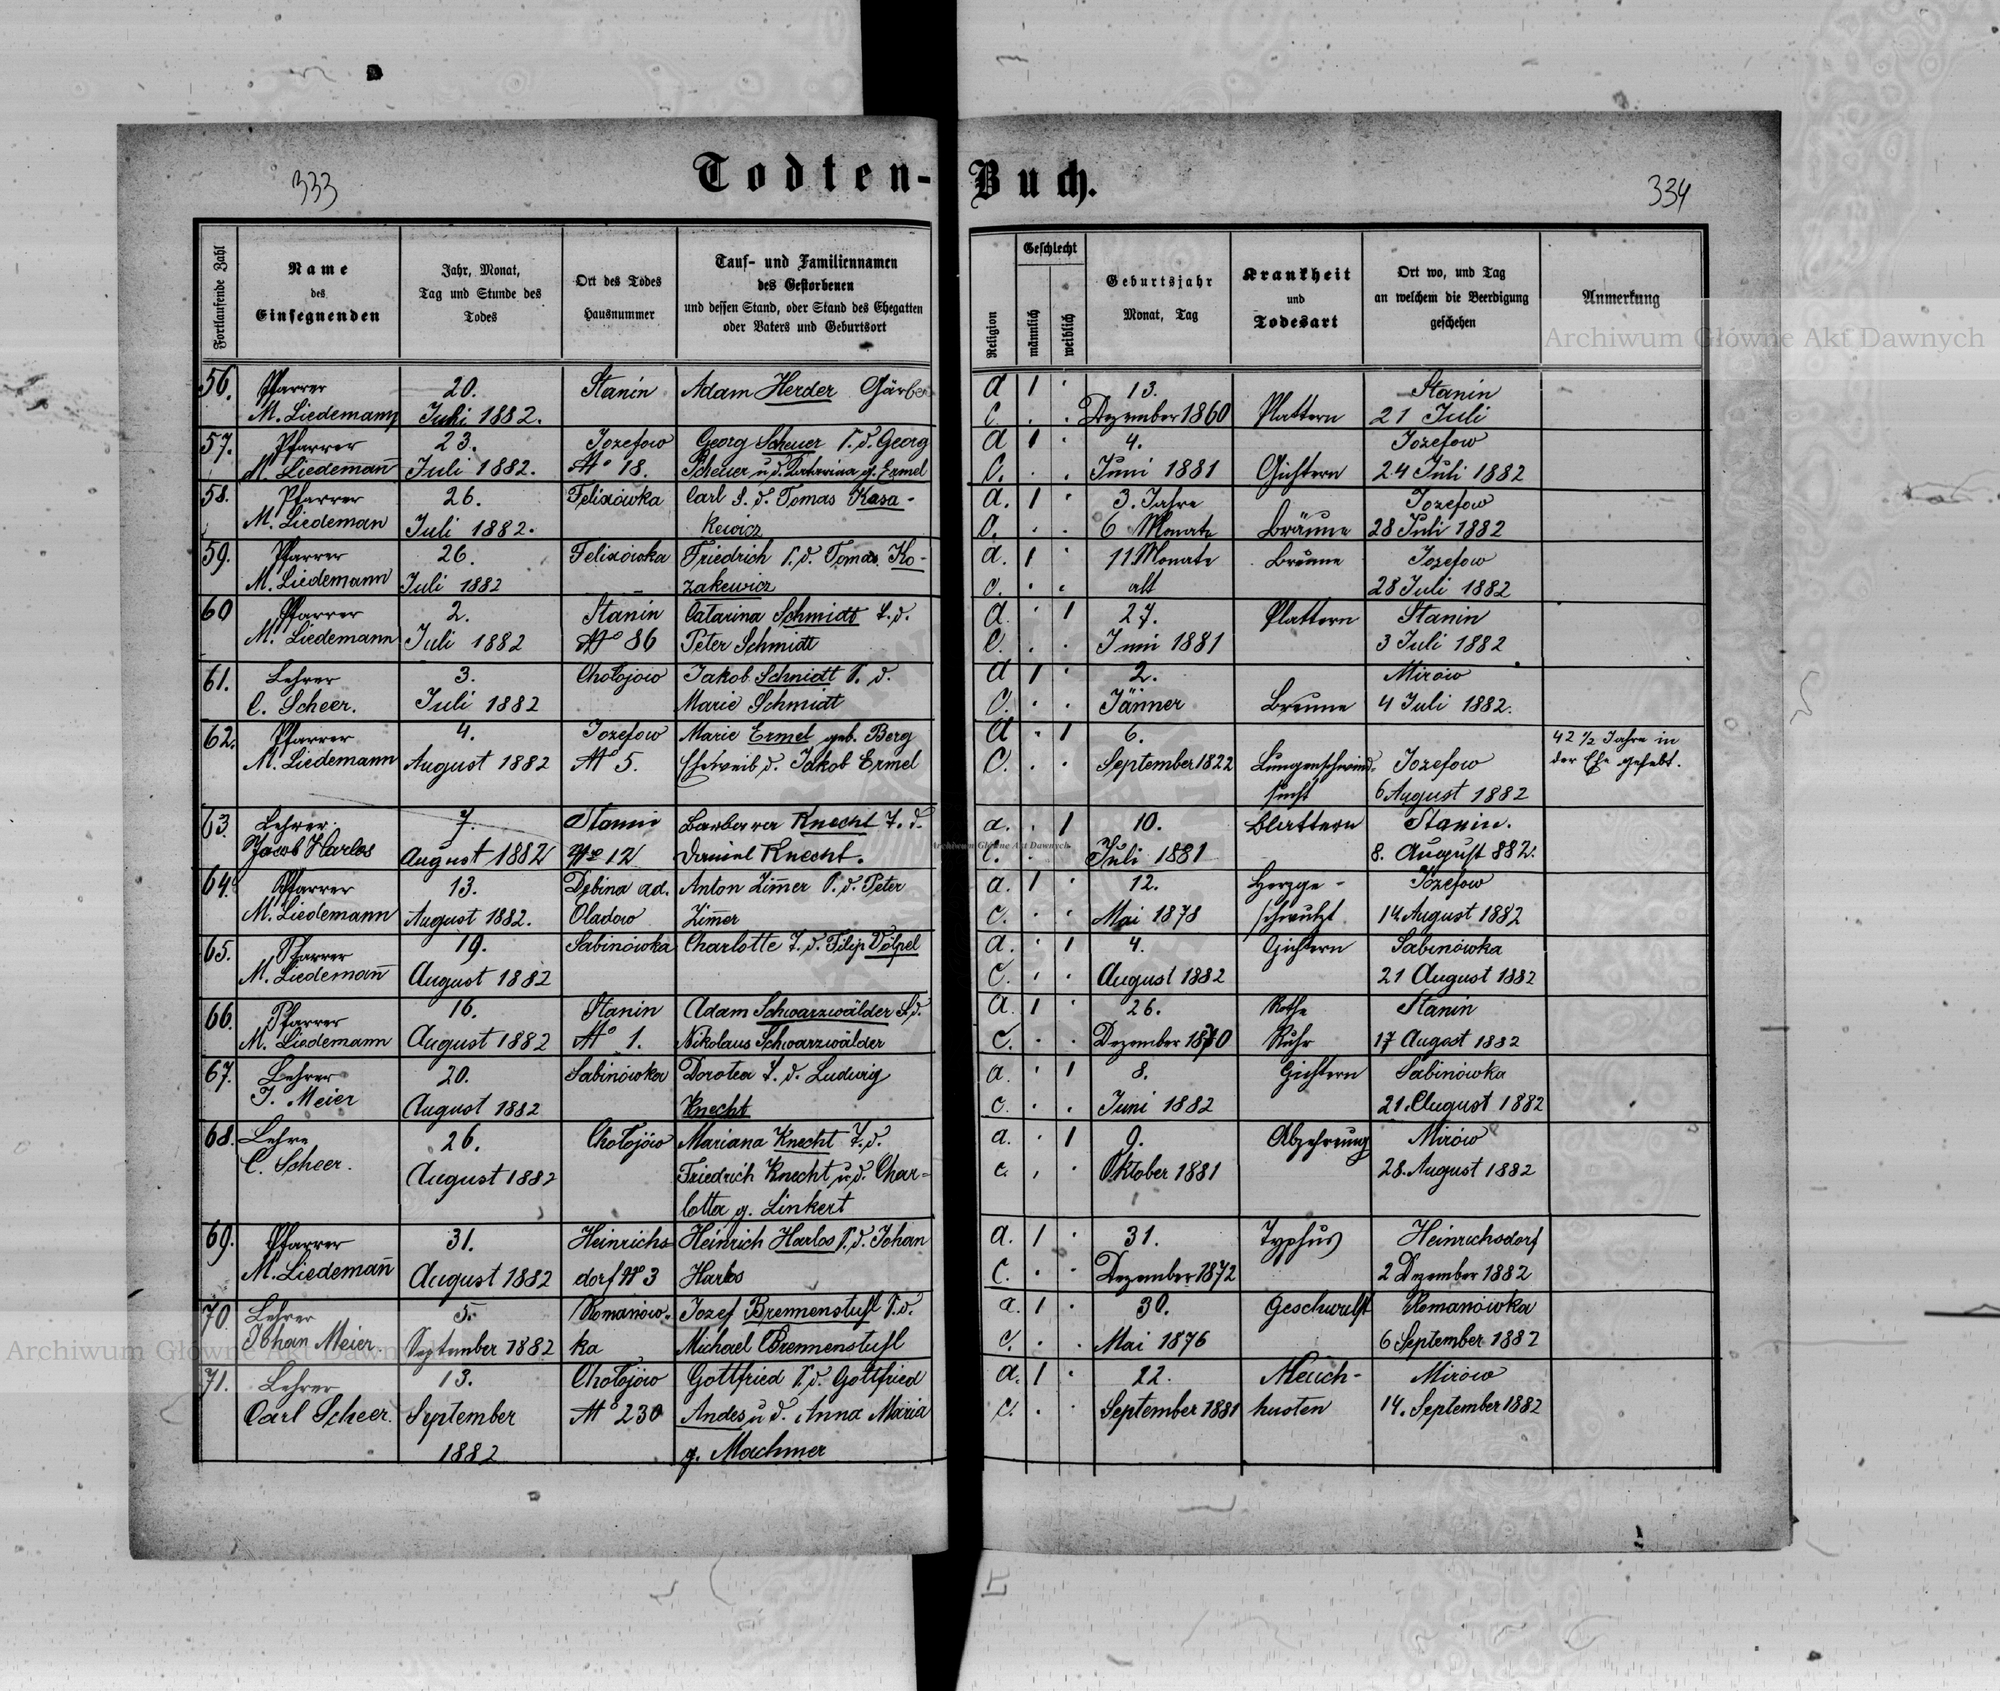 333
Todten-
Buch.
334
Fortlaufende Zahl
Name
des
Einsegnenden
Jahr, Monat,
Tag und Stunde des
Todes
Ort des Todes
Hausnummer
Tauf- und Familiennamen
des Gestorbenen
und dessen Stand, oder Stand des Ehegatten
oder Vaters und Geburtsort
Religion
Geschlecht
männlich
weiblich
Geburtsjahr
Monat, Tag
Krankheit
und
Todesart
Ort wo, und Tag
an welchem die Beerdigung
geschehen
Anmerkung
Archiwum Główne Akt Dawnych
56. Pfarrer 20. Stanin Adam Herder a 1 · 13. Stanin
M. Liedemann Juli 1882. C. · · Dezember 1860 Blattern 21 Juli
57. Pfarrer 23. Jozefow Georg Scheuer S. d. Georg a 1 · 4. Jozefow
M. Liedemañ Juli 1882. No 18. Scheuer u. d. Katarina g. Ermel C. · · Juni 1881 Gichtern 24 Juli 1882
58. Pfarrer 26. Felixówka Carl S. d. Tomas Kasa- a. 1 · 3. Jahre Jozefow
M. Liedeman Juli 1882. kewicz C. · · 6 Monate Bräune 28 Juli 1882
59. Pfarrer 26. Felixówka Friedrich S. d. Tomas Ko- a. 1 · 11 Monate Bräune Jozefow
M. Liedemann Juli 1882 zakewicz c. · · alt 28 Juli 1882
60 Pfarrer 2. Stanin Catarina Schmidt T. d. a. · 1 27. Blattern Stanin
M. Liedemann Juli 1882 No 86 Peter Schmidt C. · · Juni 1881 3 Juli 1882
61. Lehrer 3. Chołojów Jakob Schmidt S. d. a 1 · 2. Mirów
C. Scheer. Juli 1882 Marie Schmidt C. · · Jänner Breune 4 Juli 1882.
62. Pfarrer 4. Jozefow Marie Ermel geb. Berg a · 1 6. 42 ½ Jahre in
M. Liedemann August 1882 No 5. Eheweib d. Jakob Ermel C. · · September 1822 Lungenschwind- Jozefow der Ehe gelebt.
sucht 6 August 1882
63. Lehrer 7. Stanin Barbara Knecht T. d. a. · 1 10. Blattern Stanin.
Jacob Harlos August 1882 No 12 Daniel Knecht. C. · · Juli 1881 8. August 882.
Archiwum Główne Akt Dawnych
64. Pfarrer 13. Dębina ad. Anton Zim̄er S. d. Peter a. 1 · 12. Herzge- Jozefow
M. Liedemann August 1882. Oladow Zim̄er C. · · Mai 1878 14 August 1882
65. Pfarrer 19. Sabinówka Charlotte T. d. Filip Völpel a. · 1 4. Gichtern Sabinówka
M. Liedemañ August 1882 C. · · August 1882 21 August 1882
66. Pfarrer 16. Stanin Adam Schwarzwälder S. d. a. 1 · 26. Rothe Stanin
M. Liedemann August 1882 No 1. Nikolaus Schwarzwälder C. · · Dezember 1870 Ruhr 17 August 1882
67. Lehrer 20. Sabinówka Dorotea T. d. Ludwig a. · 1 8. Gichtern Sabinówka
J. Meier August 1882 Knecht c. · · Juni 1882 21. August 1882
68. Lehre 26. Chołojów Mariana Knecht T. d. a. · 1 9. Abzehrung Mirów
C. Scheer. August 1882 Friedrich Knecht u. d. Char- c. · · Oktober 1881 28. August 1882
lotta g. Linkert
69. Pfarrer 31. Heinrichs- Heinrich Harlos S. d. Johan a. 1 · 31. Typhus Heinrichsdorf
M. Liedemañ August 1882 dorf No 3 Harlos C. · · Dezember 1872 2 Dezember 1882
70. Lehrer 5. Romanów- Jozef Brennenstuhl S. d. a. 1 · 30. Geschwulst Romanówka
Johan Meier. September 1882 ka Michael Brennenstuhl c. · · Mai 1876 6 September 1882
Archiwum Główne Akt Dawnych
71. Lehrer 13. Chołojów Gottfried S. d. Gottfried a. 1 · 22. Keuch- Mirów
Carl Scheer. September No 230 Andes u. d. Anna Maria c. · · September 1881 husten 14. September 1882
1882 g. Machmer